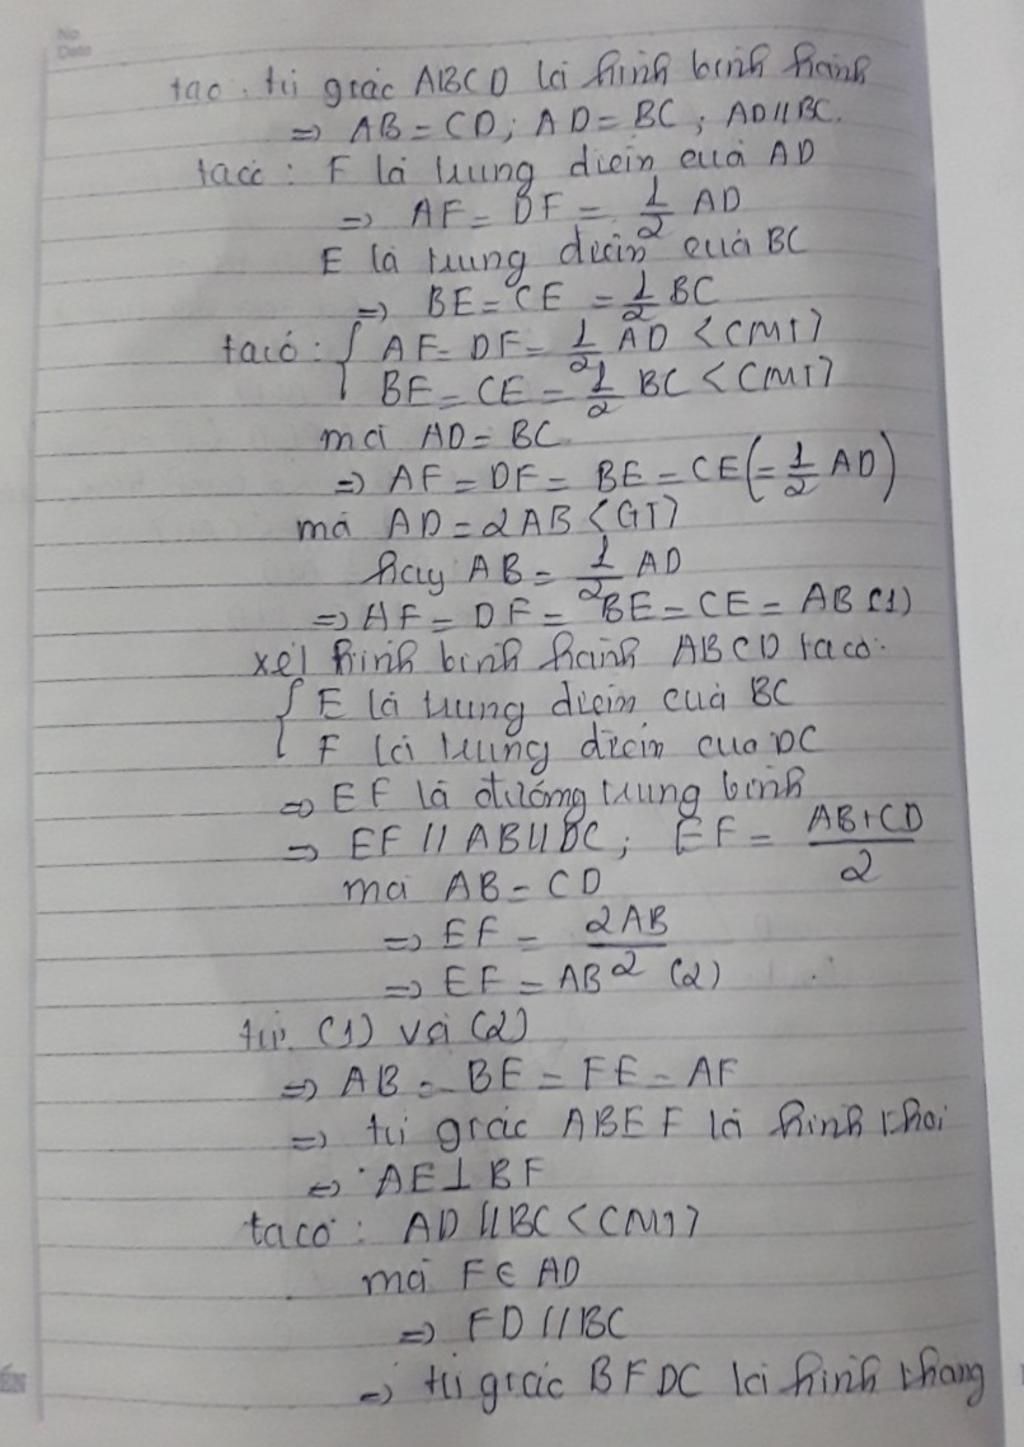 No
Date
tac. tứ giác ABCD là hình bình hành
=> AB = CD; AD = BC; AD // BC.
tacc: F là trung điểm của AD
=> AF = DF = 1/2 AD
E là trung điểm của BC
=> BE = CE = 1/2 BC
tacó: { AF = DF = 1/2 AD <CMT>
BE = CE = 1/2 BC <CMT>
mà AD = BC
=> AF = DF = BE = CE (= 1/2 AD)
mà AD = 2AB <GT>
hay AB = 1/2 AD
=> AF = DF = BE = CE = AB (1)
xét hình bình hành ABCD taco:
{ E là trung điểm của BC
F là trung điểm cua DC
=> EF là đường trung bình
=> EF // AB // DC; EF = (AB+CD)/2
mà AB = CD
=> EF = 2AB/2
=> EF = AB (2)
từ (1) và (2)
=> AB = BE = FE = AF
=> tứ giác ABEF là hình thoi
=> AE ⊥ BF
taco: AD // BC <CMT>
mà F ∈ AD
=> FD // BC
=> tứ giác BFDC là hình thang